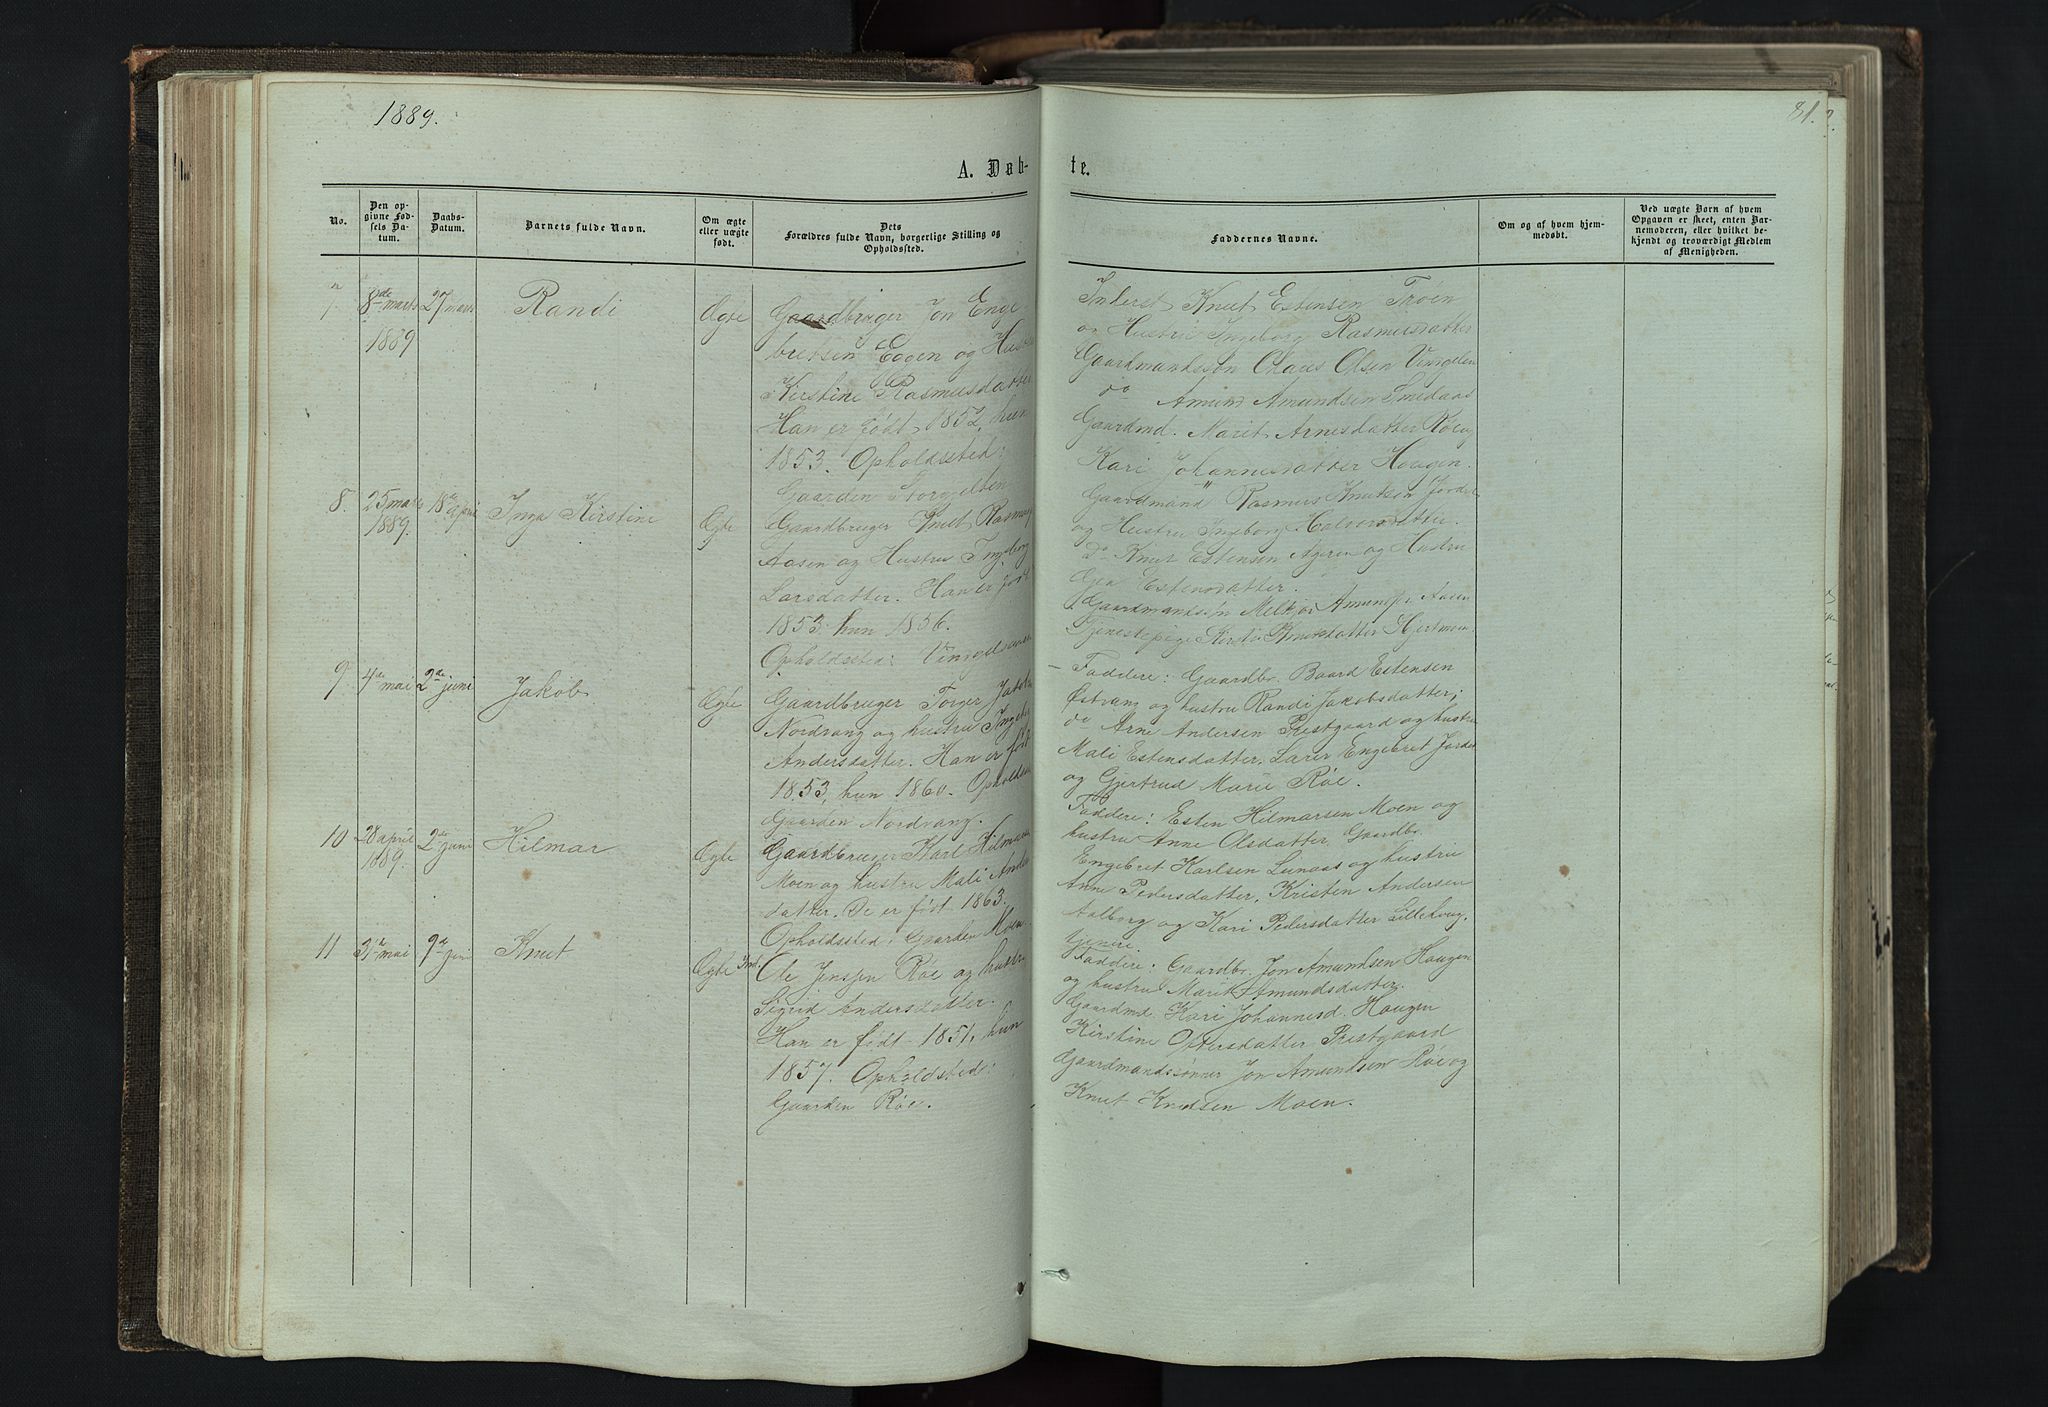 1889.
81.
A. Døb-
te.
No.
Den op-
givne Fød-
sels Da-
tum.
Daabs-
Datum.
Barnets fulde Navn.
Om ægte
eller uægte
født.
Dets
Forældres fulde Navn, borgerlige Stilling og
Opholdssted.
Faddernes Navne.
Om og af hvem hjem-
medøbt.
Ved uægte Børn af hvem
Opgaven er skeet, enten Bar-
nemoderen, eller hvilket be-
kjendt og troværdigt Medlem
af Menigheden.
7
8de marts
1889
27 marts
Randi
Ægte
Gaardbruger Jon Enge-
bretsen Eggen og Hustru
Kirstine Rasmusdatter
Han er født 1852, hun
1853. Opholdssted:
Gaarden
Inderst Knut Estensen Trøen
og Hustru Ingeborg Rasmusdatter
Gaardmandssøn Olaus Olsen Vingelen
do Amund Amundsen Smedaas
Gaardmd. Marit Arnesdatter Røe og
Kari Johannesdatter Haugen.
8.
25 marts
1889.
18de april
Inga Kirstine
Ægte
Gaardbruger Knut Rasmus
Aasen og Hustru Ingeborg
Larsdatter. Han er født
1853, hun 1856.
Opholdssted: Vingelsaasen
Gaardmand Rasmus Knutsen Jordet
og Hustru Ingeborg Halvorsdatter.
do Knut Estensen Ageren og Hustru
Estensdatter.
Gaardmandssøn Melkjor Aasen
Tjenestepige Knutsdatter
9
4de mai
2de juni
Jakob
Ægte
Gaardbruger Torger Jakobs
Nordvang og hustru Ingebor
Andersdatter. Han er født
1853, hun 1860. Opholdssted
Gaarden Nordvang.
Faddere: Gaardbr. Baard Estensen
Østvang og hustru Randi Jakobsdatter;
do Arne Andersen Prestgaard og hustru
Mali Estensdatter, Lærer Engebret Jordet
og Gjertrud Marie Røe.
10
28 april
1889.
2de juni
Hilmar
Ægte
Gaardbruger Karl Hilmarsen
Moen og hustru Mali Anders
datter. De er født 1863.
Opholdssted: Gaarden Moen.
Faddere: Esten Hilmarsen Moen og
hustru Anne Olsdatter, Gaardbr.
Engebret Karlsen Lunaas og hustru
Anne Pedersdatter, Kristen Andersen
Aalborg og Kari Pedersdatter Lillehaug,
tjenere.
11
31te mai
9de juni
Knut
Ægte
Ind. Ole Jensen Røe og hustru
Sigrid Andersdatter.
Han er født 1851, hun
1857. Opholdssted:
Gaarden Røe.
Faddere: Gaardbr. Jon Amundsen Haugen
og hustru Marit Amundsdatter.
Gaardmd. Kari Johannesd. Haugen
Kirstine Ottersdatter Prestgaard
Gaardmandssønner Jon Amundsen Røe og
Knut Knudsen Moen.